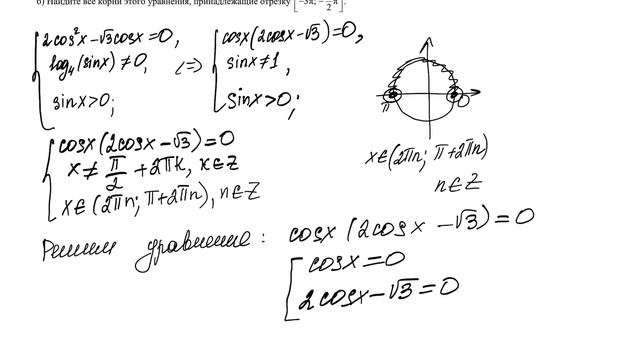 б) Найдите все корни этого уравнения, принадлежащие отрезку
2cos²x − √3cosx = 0,
log₄(sinx) ≠ 0,
sinx > 0;
<=>
cosx(2cosx − √3) = 0,
sinx ≠ 1,
sinx > 0;
π 0
x ∈ (2πn; π + 2πn)
n ∈ Z
cosx(2cosx − √3) = 0
x ≠ π/2 + 2πk, k ∈ Z
x ∈ (2πn; π + 2πn), n ∈ Z
Решим уравнение: cosx(2cosx − √3) = 0
cosx = 0
2cosx − √3 = 0